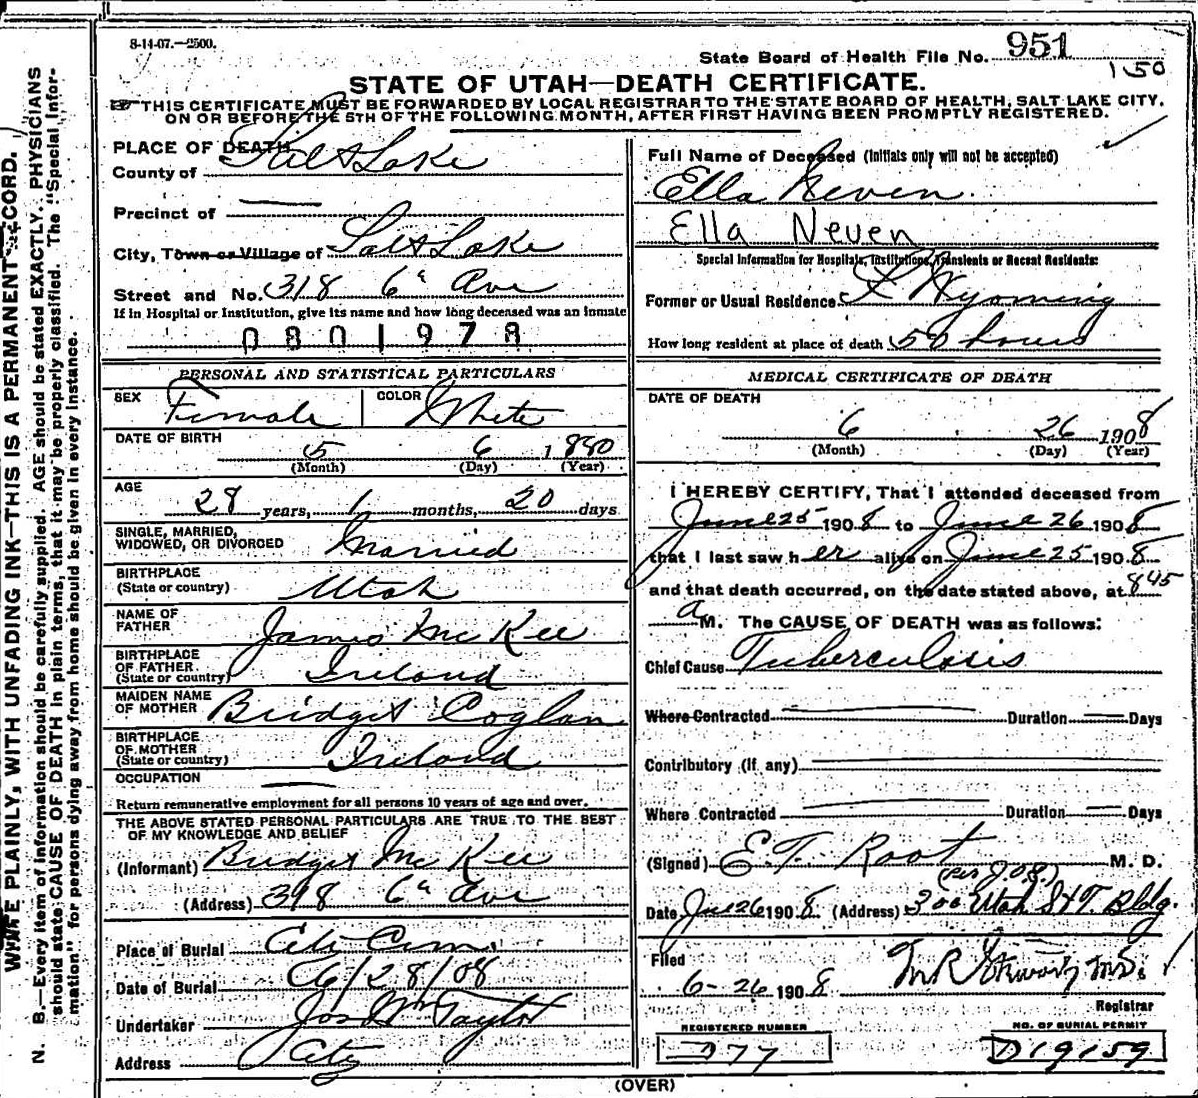 8-14-07.—2500.
State Board of Health File No. 951
150
STATE OF UTAH—DEATH CERTIFICATE.
THIS CERTIFICATE MUST BE FORWARDED BY LOCAL REGISTRAR TO THE STATE BOARD OF HEALTH, SALT LAKE CITY,
ON OR BEFORE THE 5TH OF THE FOLLOWING MONTH, AFTER FIRST HAVING BEEN PROMPTLY REGISTERED.
WRITE PLAINLY, WITH UNFADING INK—THIS IS A PERMANENT RECORD.
N. B.—Every item of information should be carefully supplied. AGE should be stated EXACTLY. PHYSICIANS
should state CAUSE OF DEATH in plain terms, that it may be properly classified. The "Special Infor-
mation" for persons dying away from home should be given in every instance.
PLACE OF DEATH
County of Salt Lake
Precinct of —
City, Town or Village of Salt Lake
Street and No. 318 6" Ave
If in Hospital or Institution, give its name and how long deceased was an inmate
0801978
PERSONAL AND STATISTICAL PARTICULARS
SEX Female COLOR White
DATE OF BIRTH 5 6 1880
(Month) (Day) (Year)
AGE
28 years, 1 months, 20 days
SINGLE, MARRIED,
WIDOWED, OR DIVORCED Married
BIRTHPLACE
(State or country) Utah
NAME OF
FATHER James McKee
BIRTHPLACE
OF FATHER
(State or country) Ireland
MAIDEN NAME
OF MOTHER Bridget Coglan
BIRTHPLACE
OF MOTHER
(State or country) Ireland
OCCUPATION —
Return remunerative employment for all persons 10 years of age and over.
THE ABOVE STATED PERSONAL PARTICULARS ARE TRUE TO THE BEST
OF MY KNOWLEDGE AND BELIEF
(Informant) Bridget McKee
(Address) 318 6" Ave
Place of Burial City Cem.
Date of Burial 6/28/08
Undertaker Jos Wm Taylor
Address City
Full Name of Deceased (Initials only will not be accepted)
Ella Neven
Ella Neven
Special Information for Hospitals, Institutions, Transients or Recent Residents:
Former or Usual Residence Wyoming
How long resident at place of death 50 hours
MEDICAL CERTIFICATE OF DEATH
DATE OF DEATH
6 26 1908
(Month) (Day) (Year)
I HEREBY CERTIFY, That I attended deceased from
June 25 1908 to June 26 1908
that I last saw her alive on June 25 1908
and that death occurred, on the date stated above, at 845
a M. The CAUSE OF DEATH was as follows:
Chief Cause Tuberculosis
Where Contracted — Duration — Days
Contributory (if any)
Where Contracted — Duration — Days
(Signed) E. T. Root M. D.
(Per J.O.S.)
Date Jun 26 1908 (Address) 300 Utah S&T. Bldg.
Filed
6-26 1908 M R Stewart M.D.
Registrar
REGISTERED NUMBER
D77
NO. OF BURIAL PERMIT
D19159
(OVER)